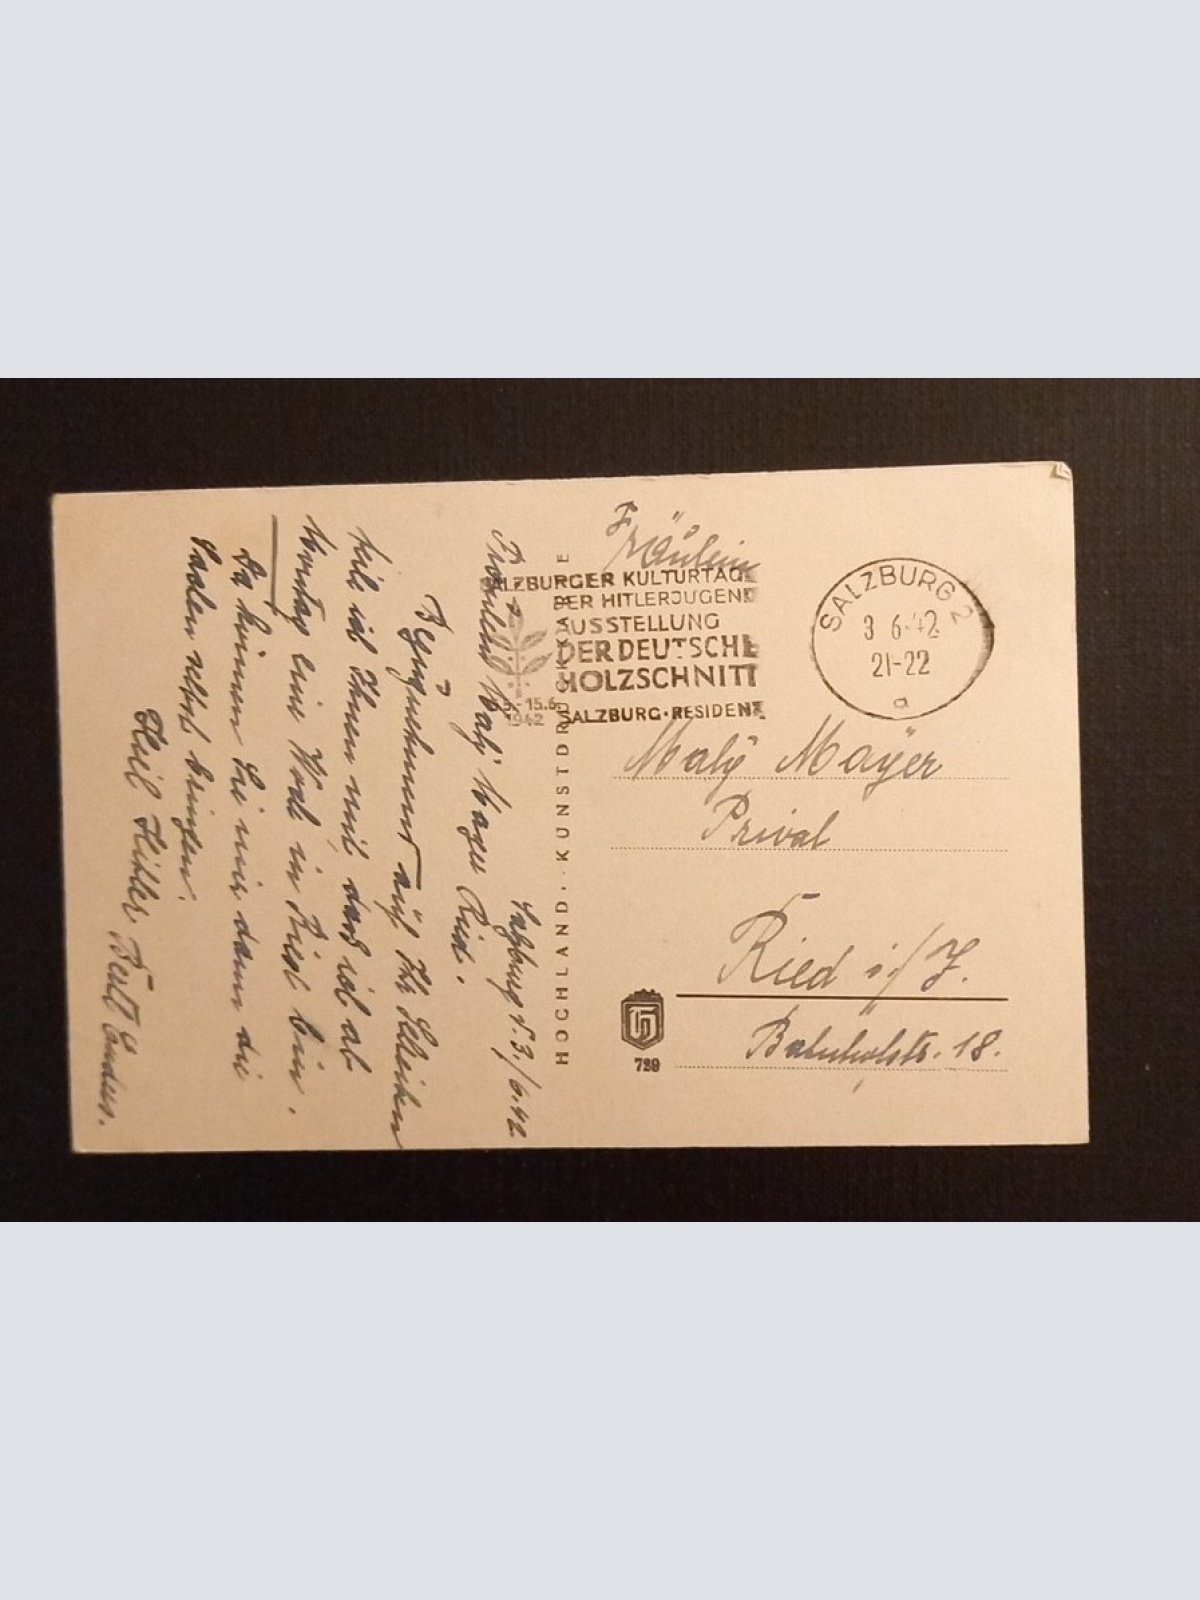 Salzburg d. 3./6.42
Fräulein Maly Mayer Ried.
Bezugnehmend auf Ihr Schreiben
teile ich Ihnen mit daß ich ab
Montag eine Woche in Ried bin.
Da können Sie mir dann die
Sachen selbst bringen.
Heil Hitler
HOCHLAND-KUNSTDRUCKKARTE
SALZBURGER KULTURTAGE
DER HITLERJUGEND
AUSSTELLUNG
DER DEUTSCHE
HOLZSCHNITT
15.6.
1942 SALZBURG·RESIDENZ
SALZBURG 2
3 6.42
21-22
a
Fräulein
Maly Mayer
Privat
Ried i/I.
Bahnhofstr. 18.
729